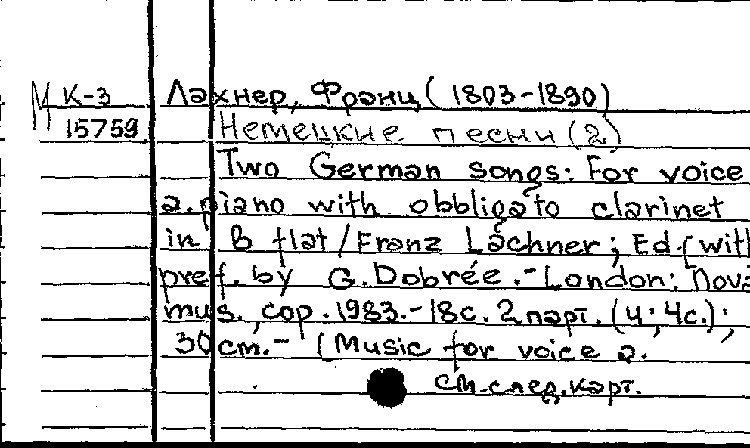 М К-3 Лахнер, Франц (1803-1890)
15759 Немецкие песни (2)
Two German songs: For voice
a. piano with obbligato clarinet
in B flat / Franz Lachner; Ed. [with
pref. by G. Dobrée. - London: Nova
mus., cop. 1983. - 18 с. 2 парт. (4; 4 с.);
30 cm. - (Music for voice a.
см. след. карт.